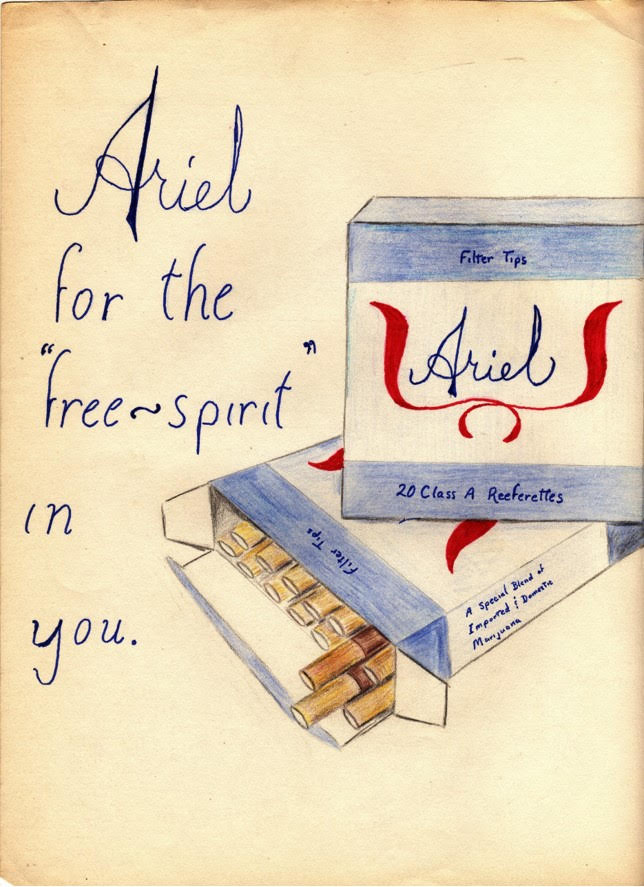 Ariel
for the
"free~spirit"
in
you.
Filter Tips
Ariel
20 Class A Reeferettes
Filter Tips
A Special Blend of
Imported & Domestic
Marijuana